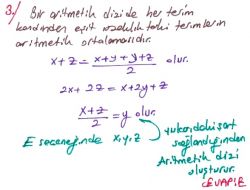 3.) Bir aritmetik dizide her terim
kendinden eşit uzaklıktaki terimlerin
aritmetik ortalamasıdır.
x+z = x+y+y+z / 2 olur.
2x+2z = x+2y+z
x+z / 2 = y olur.
E seçeneğinde x,y,z
yukarıdaki şart
sağlandığından
Aritmetik dizi
oluşturur.
CEVAP:E